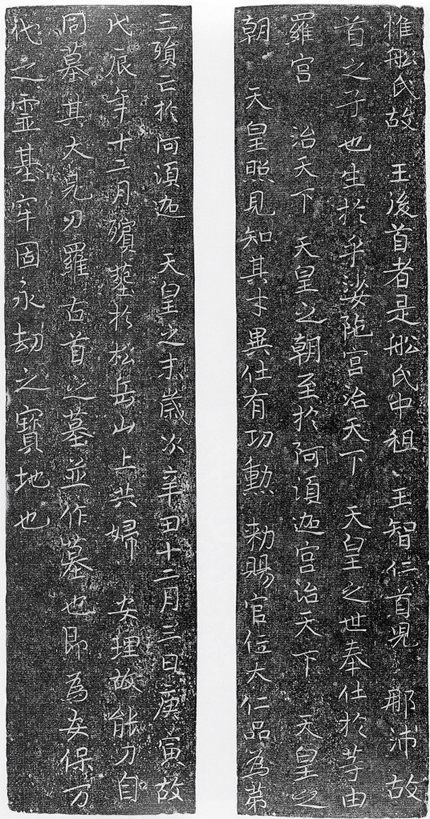 惟舩氏故 王後首者是舩氏中祖 王智仁首児 那沛故
首之子也生於乎娑陁宮治天下 天皇之世奉仕於等由
羅宮 治天下 天皇之朝至於阿須迦宮治天下 天皇之
朝 天皇照見知其才異仕有功勲 勅賜官位大仁品為第
三殞亡於阿須迦 天皇之末歳次辛丑十二月三日庚寅故
戊辰年十二月殯葬於松岳山上共婦 安理故能刀自
同墓其大兄刀羅古首之墓並作墓也即為安保万
代之靈基牢固永劫之寶地也